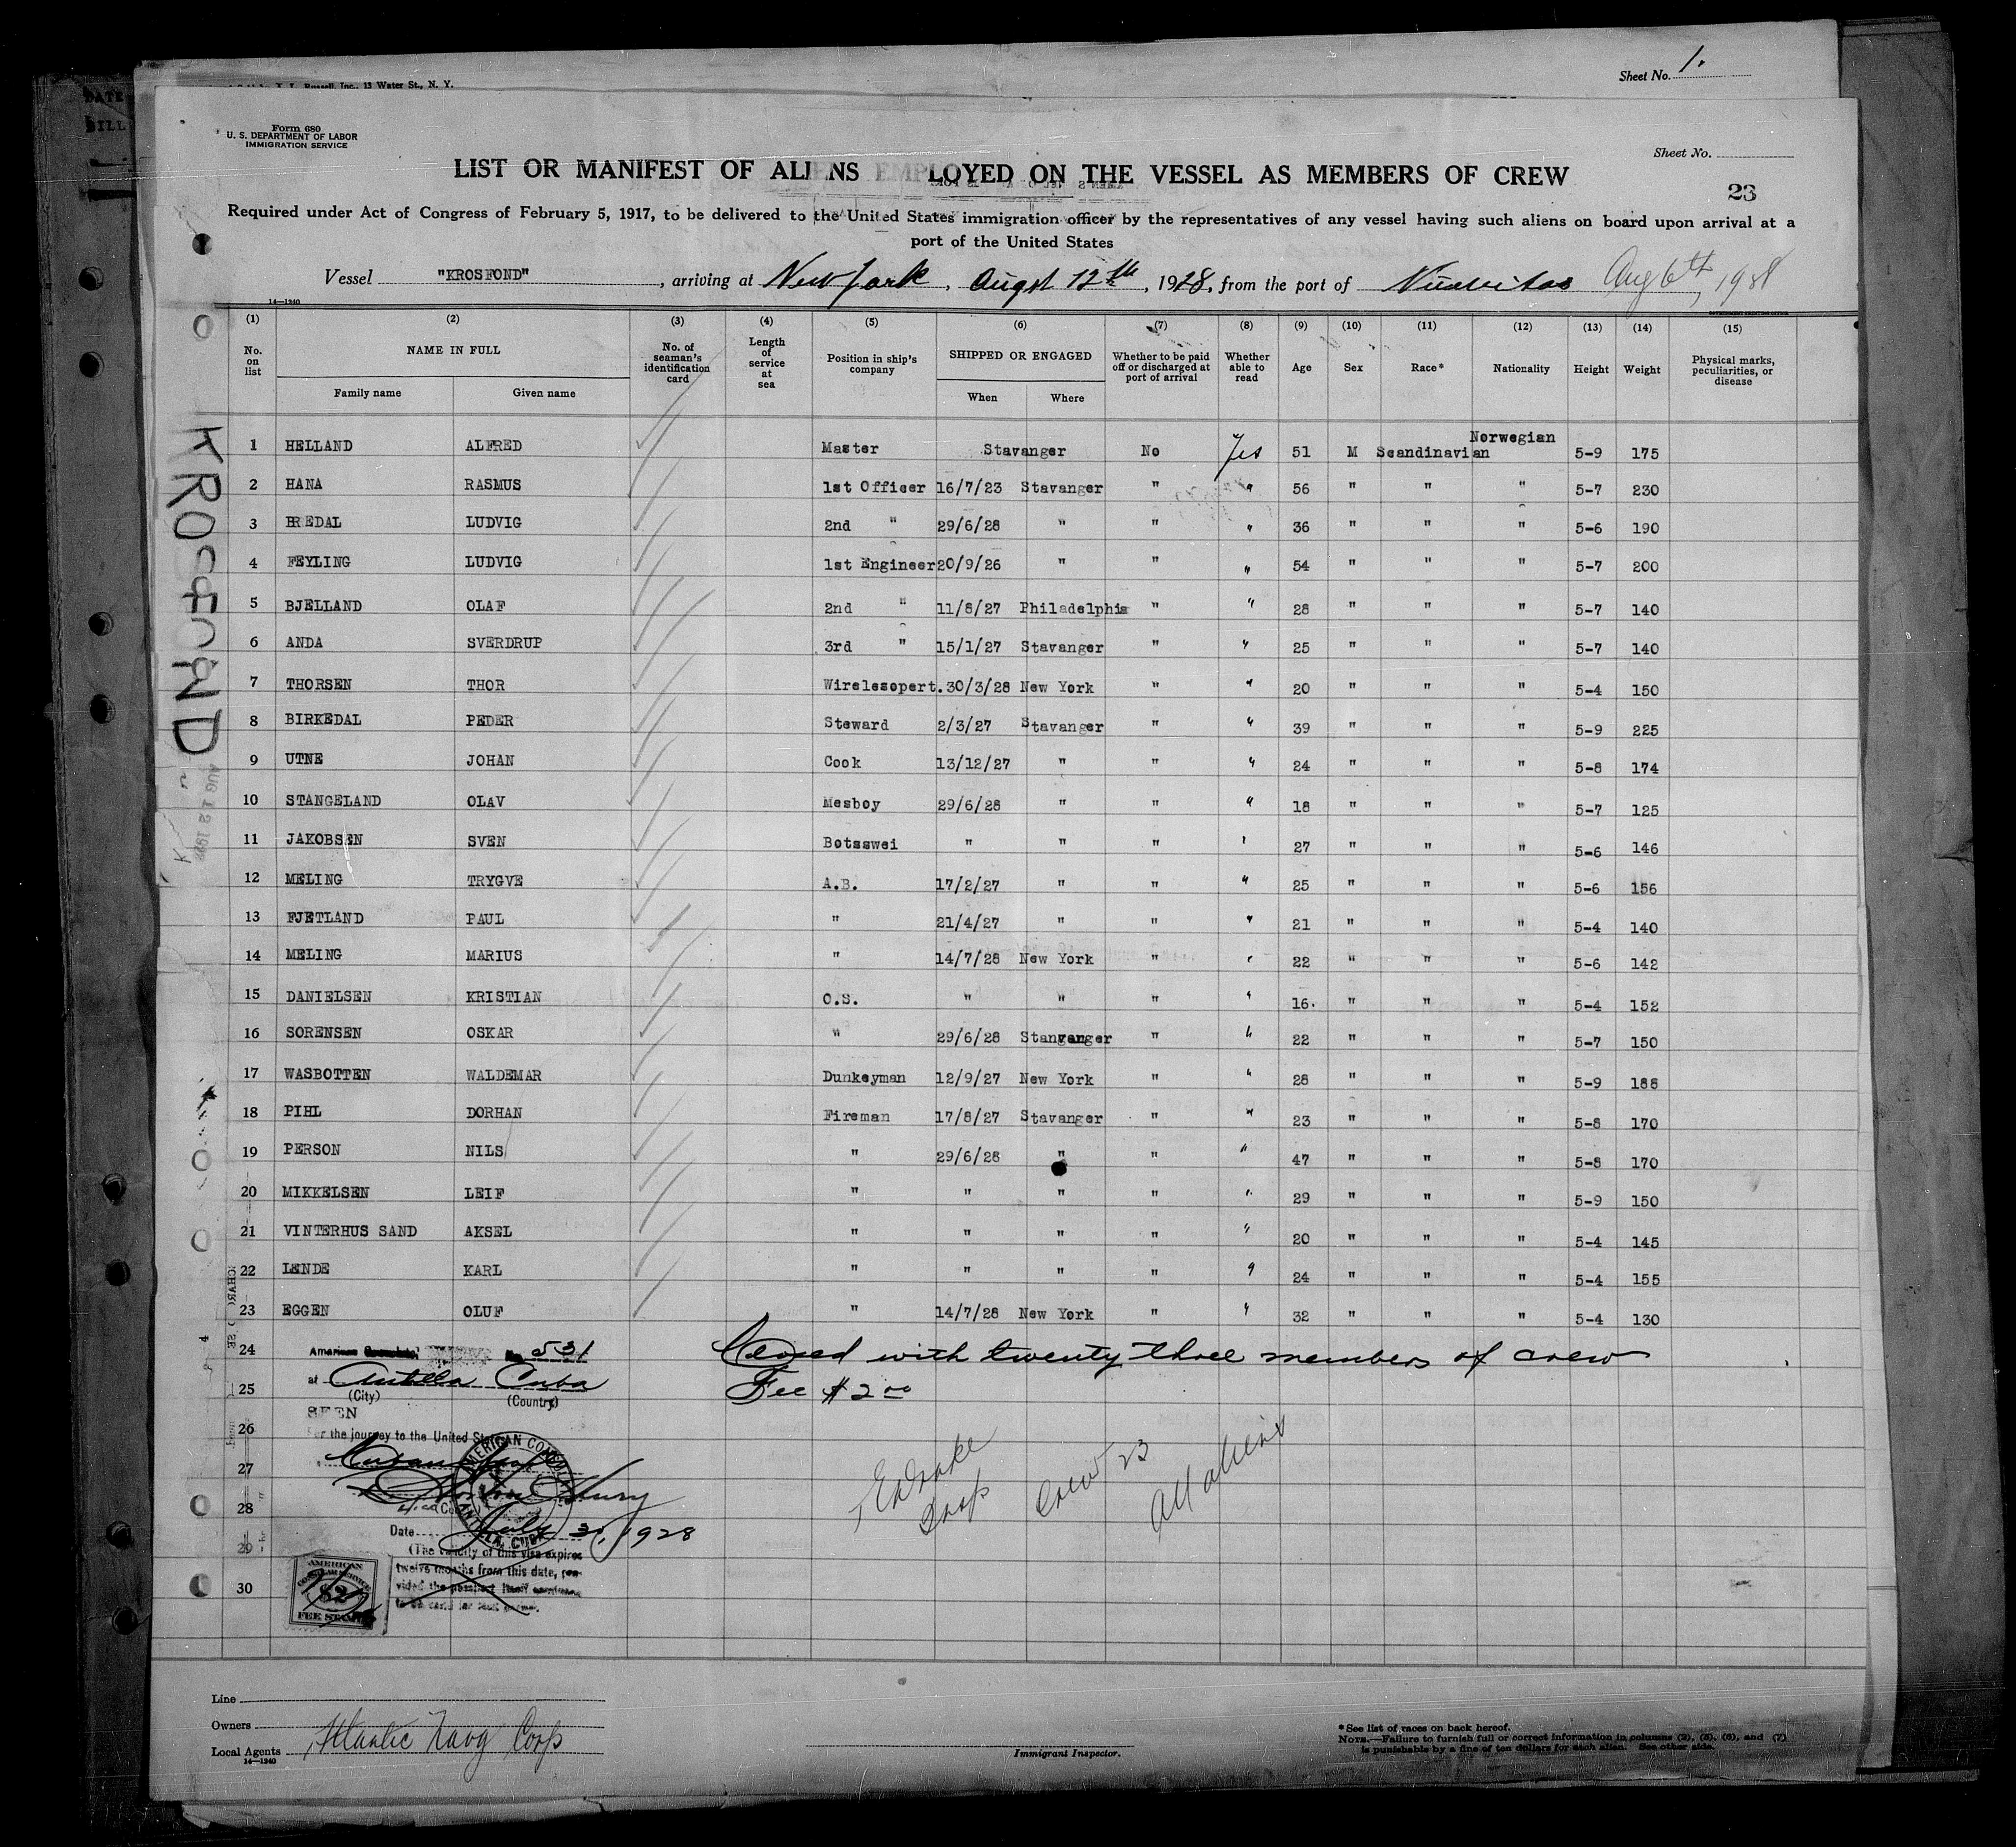 Sheet No. 1.
T. L. Russell, Inc., 13 Water St., N. Y.
DATE
BILL
Form 680
U. S. DEPARTMENT OF LABOR
IMMIGRATION SERVICE
Sheet No.
LIST OR MANIFEST OF ALIENS EMPLOYED ON THE VESSEL AS MEMBERS OF CREW
23
Required under Act of Congress of February 5, 1917, to be delivered to the United States immigration officer by the representatives of any vessel having such aliens on board upon arrival at a
port of the United States
Vessel "KROSFOND", arriving at New York, Augst 12th, 1928, from the port of Nuevitas Aug 6th, 1928
14—1240
(1) (2) (3) (4) (5) (6) (7) (8) (9) (10) (11) (12) (13) (14) (15)
No. on list NAME IN FULL No. of seaman's identification card Length of service at sea Position in ship's company SHIPPED OR ENGAGED Whether to be paid off or discharged at port of arrival Whether able to read Age Sex Race* Nationality Height Weight Physical marks, peculiarities, or disease
Family name Given name When Where
1 HELLAND ALFRED Master Stavanger No Yes 51 M Scandinavian Norwegian 5-9 175
2 HANA RASMUS 1st Officer 16/7/23 Stavanger " " 56 " " " 5-7 230
3 BREDAL LUDVIG 2nd " 29/6/28 " " " 36 " " " 5-6 190
4 FEYLING LUDVIG 1st Engineer 20/9/26 " " " 54 " " " 5-7 200
5 BJELLAND OLAF 2nd " 11/8/27 Philadelphia " " 28 " " " 5-7 140
6 ANDA SVERDRUP 3rd " 15/1/27 Stavanger " " 25 " " " 5-7 140
7 THORSEN THOR Wirelesopert. 30/3/28 New York " " 20 " " " 5-4 150
8 BIRKEDAL PEDER Steward 2/3/27 Stavanger " " 39 " " " 5-9 225
9 UTNE JOHAN Cook 13/12/27 " " " 24 " " " 5-8 174
10 STANGELAND OLAV Mesboy 29/6/28 " " " 18 " " " 5-7 125
11 JAKOBSEN SVEN Botsswei " " " " 27 " " " 5-6 146
12 MELING TRYGVE A.B. 17/2/27 " " " 25 " " " 5-6 156
13 FJETLAND PAUL " 21/4/27 " " " 21 " " " 5-4 140
14 MELING MARIUS " 14/7/28 New York " " 22 " " " 5-6 142
15 DANIELSEN KRISTIAN O.S. " " " " 16. " " " 5-4 152
16 SORENSEN OSKAR " 29/6/28 Stanvanger " " 22 " " " 5-7 150
17 WASBOTTEN WALDEMAR Dunkeyman 12/9/27 New York " " 28 " " " 5-9 188
18 PIHL DORHAN Fireman 17/8/27 Stavanger " " 23 " " " 5-8 170
19 PERSON NILS " 29/6/28 " " " 47 " " " 5-8 170
20 MIKKELSEN LEIF " " " " " 29 " " " 5-9 150
21 VINTERHUS SAND AKSEL " " " " " 20 " " " 5-4 145
22 LENDE KARL " " " " " 24 " " " 5-4 155
23 EGGEN OLUF " 14/7/28 New York " " 32 " " " 5-4 130
24 American No 531 Closed with twenty three members of crew
25 at Antilla Cuba Fee $2.00
(City) (Country)
26 SEEN
For the journey to the United States
27
28
Date July 31, 1928
29 (The validity of this visa expires
twelve months from this date, pro-
30 vided the passport itself continues
to be valid for that period.
AMERICAN CONSULAR ANTILLA, CUBA
AMERICAN CONSULAR SERVICE $2 FEE STAMP
Crew 23
All aliens
KROSFOND
AUG 12 1928
Line
Owners
Local Agents Atlantic Navg Corp
14—1240
Immigrant Inspector.
*See list of races on back hereof.
NOTE.—Failure to furnish full or correct information in columns (2), (5), (6), and (7)
is punishable by a fine of ten dollars for each alien. See other side.